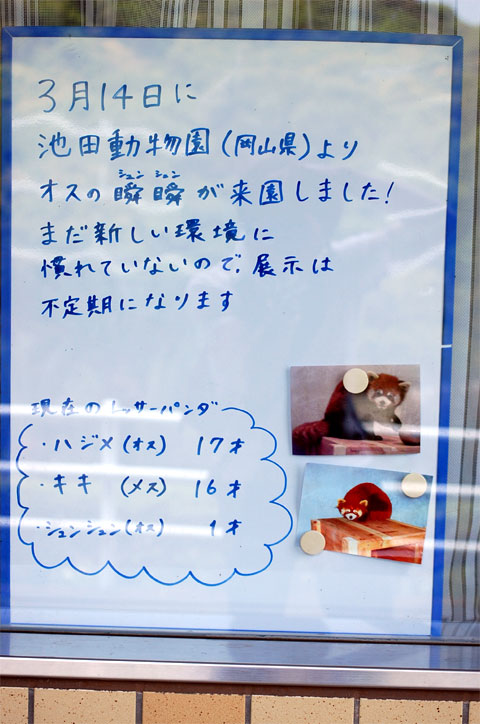 3月14日に
池田動物園(岡山県)より
シュン シュン
オスの 瞬 瞬 が来園しました!
まだ新しい環境に
慣れていないので、展示は
不定期になります
現在のレッサーパンダ
・ハジメ(オス) 17才
・キキ (メス) 16才
・シュンシュン(オス) 1才